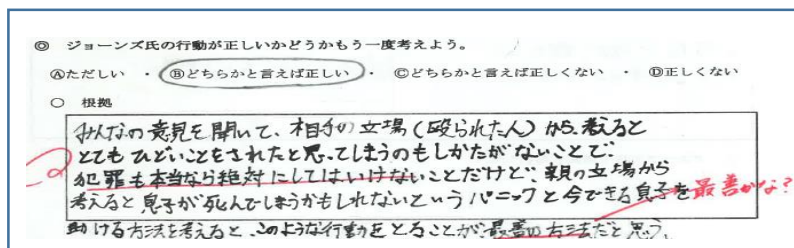 ◎ ジョーンズ氏の行動が正しいかどうかもう一度考えよう。
Ⓐただしい ・ Ⓑどちらかと言えば正しい ・ Ⓒどちらかと言えば正しくない ・ Ⓓ正しくない
○ 根拠
みんなの意見を聞いて、相手の立場(殴られた人)から考えると
とてもひどいことをされたと思ってしまうのもしかたがないことで、
犯罪も本当なら絶対にしてはいけないことだけど、親の立場から
考えると息子が死んでしまうかもしれないというパニックと今できる息子を
最善かな?
助ける方法を考えると、このような行動をとることが、最善の方法だと思う。